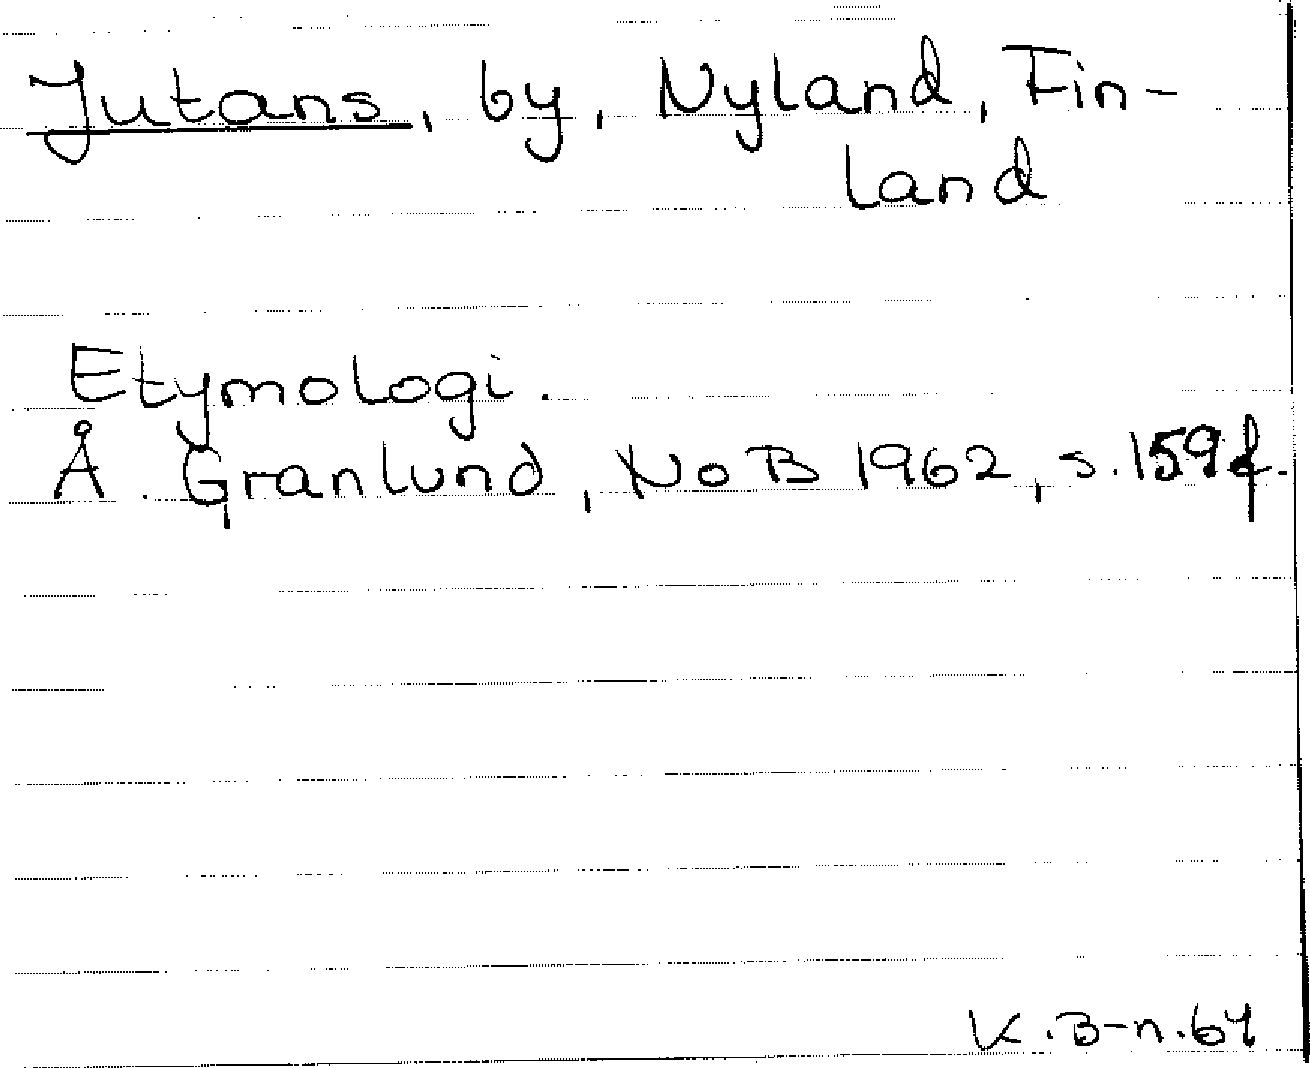 Jutans, by, Nyland, Fin-
land
Etymologi.
Å. Granlund, NoB 1962, s. 159 f.
K.B-n.64